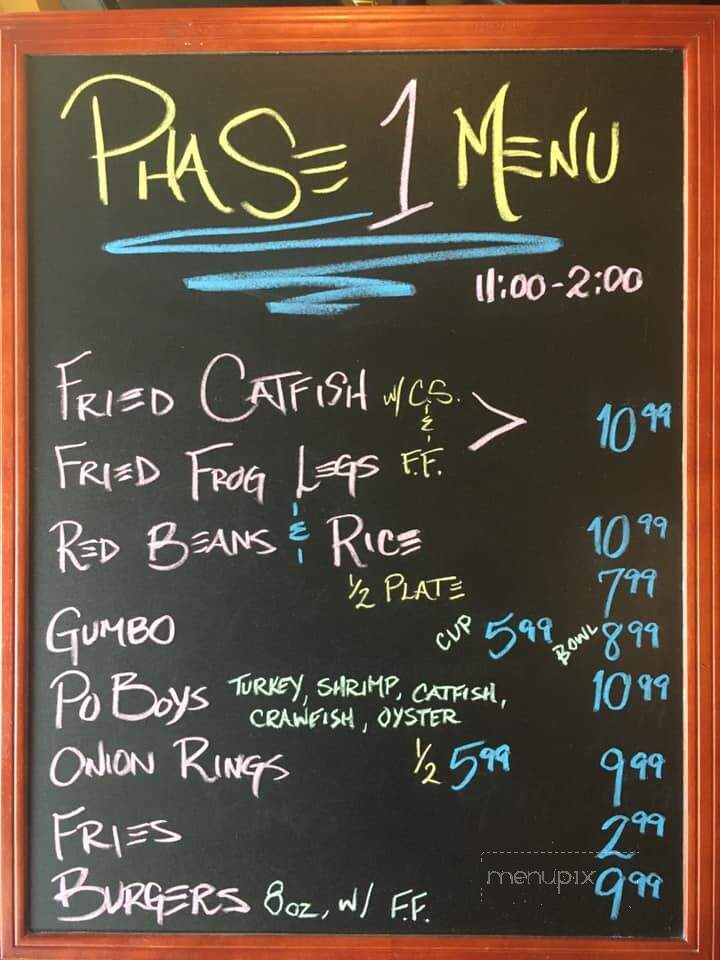 PHASE 1 MENU
11:00-2:00
FRIED CATFISH w/ C.S.
&
FRIED FROG LEGS F.F. > 10 99
RED BEANS & RICE 10 99
1/2 PLATE 7 99
GUMBO CUP 5 99 BOWL 8 99
PO BOYS TURKEY, SHRIMP, CATFISH, 10 99
CRAWFISH, OYSTER
ONION RINGS 1/2 5 99 9 99
FRIES 2 99
menupix
BURGERS 8 OZ, W/ F.F. 9 99